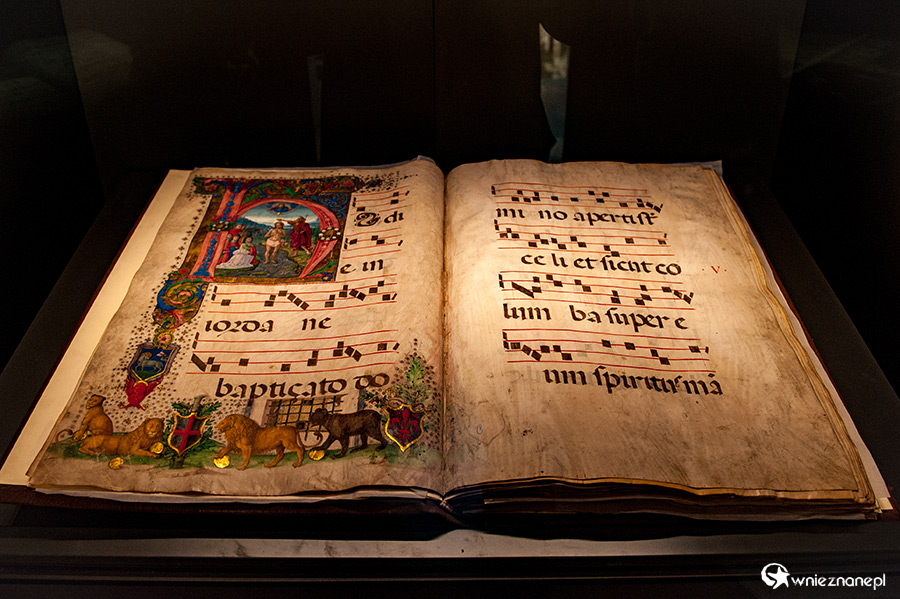 H O di
e in
iorda ne
baptiçato do
mi no aperti st̄
ce li et sicut co
.V.
lum ba super e
um spiritus mā
wnieznane.pl